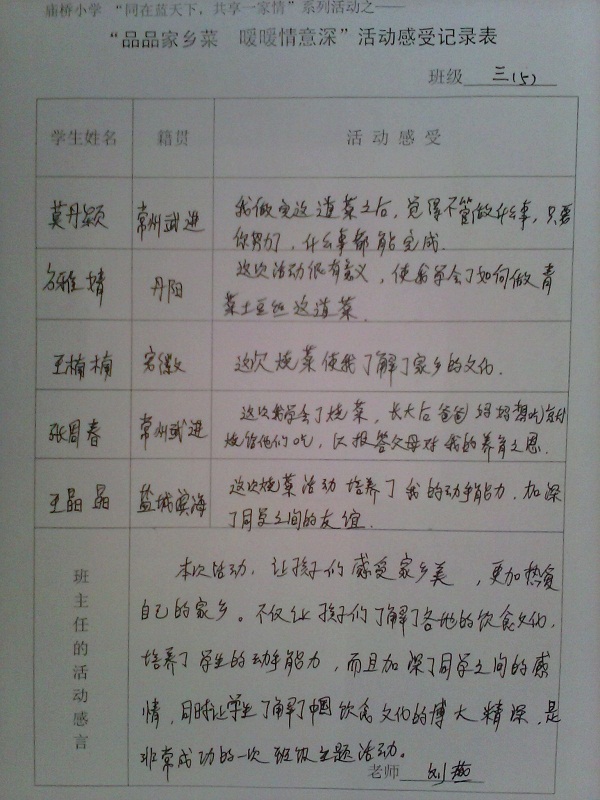 庙桥小学 “同在蓝天下，共享一家情”系列活动之——
“品品家乡菜 暖暖情意深”活动感受记录表
班级 三(5)
学生姓名 籍贯 活动感受
莫丹颖 常州武进 我做完这道菜之后，觉得不管做什么事，只要
你努力，什么事都能完成.
雅婧 丹阳 这次活动很有意义，使我学会了如何做青
菜土豆丝这道菜.
王楠楠 安徽 这次烧菜使我了解了家乡的文化.
张周春 常州武进 这次我学会了烧菜，长大后爸爸妈妈想吃
烧给他们吃，以报答父母对我的养育之恩.
王晶晶 盐城滨海 这次烧菜活动培养了我的动手能力.加深
了同学之间的友谊.
班主任的活动感言
本次活动，让孩子们感受家乡美，更加热爱
自己的家乡。不仅让孩子们了解了各地的饮食文化，
培养了学生的动手能力，而且加深了同学之间的感
情，同时让学生了解了中国饮食文化的博大精深，是
非常成功的一次班级主题活动。
老师 刘燕